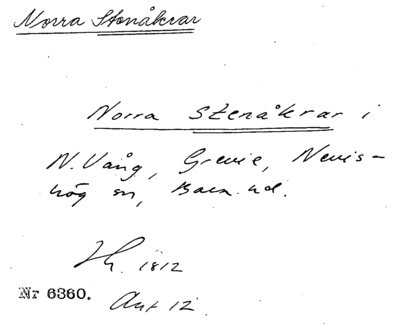 Norra Stenåkrar
Norra Stenåkrar i
N. Vång, Grevie, Nevis-
hög sn, Bara hd.
1812
Nr 6360. Akt 12.